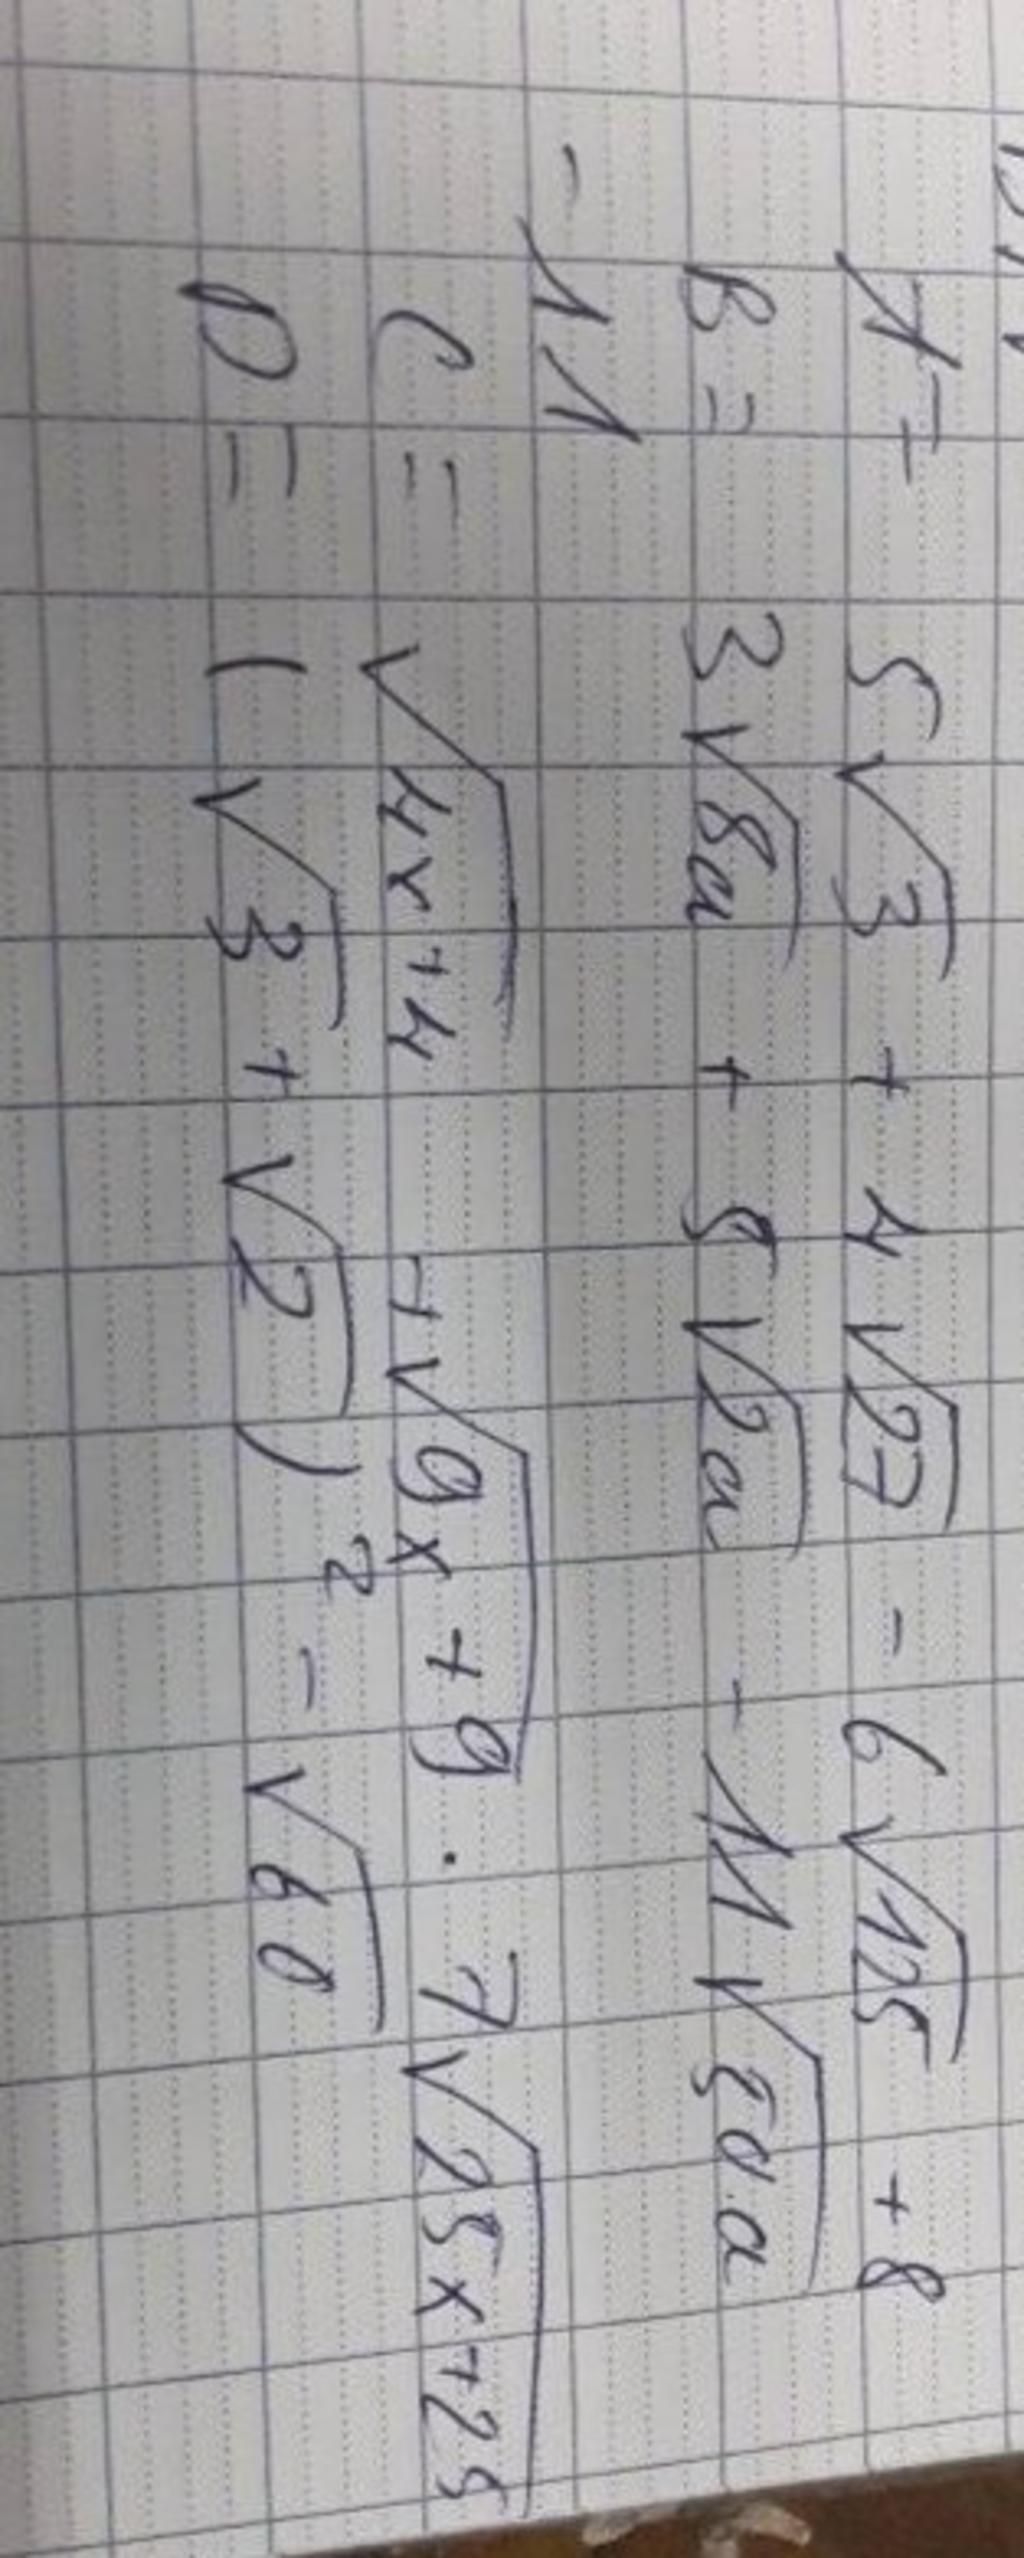 A = 5√3 + 4√27 - 6√125 + 8
B = 3√8a + 5√2a - 11√50a
- 11
C = √4x+4 + √9x+9 . 7√25x+25
D = (√3 + √2)² - √60